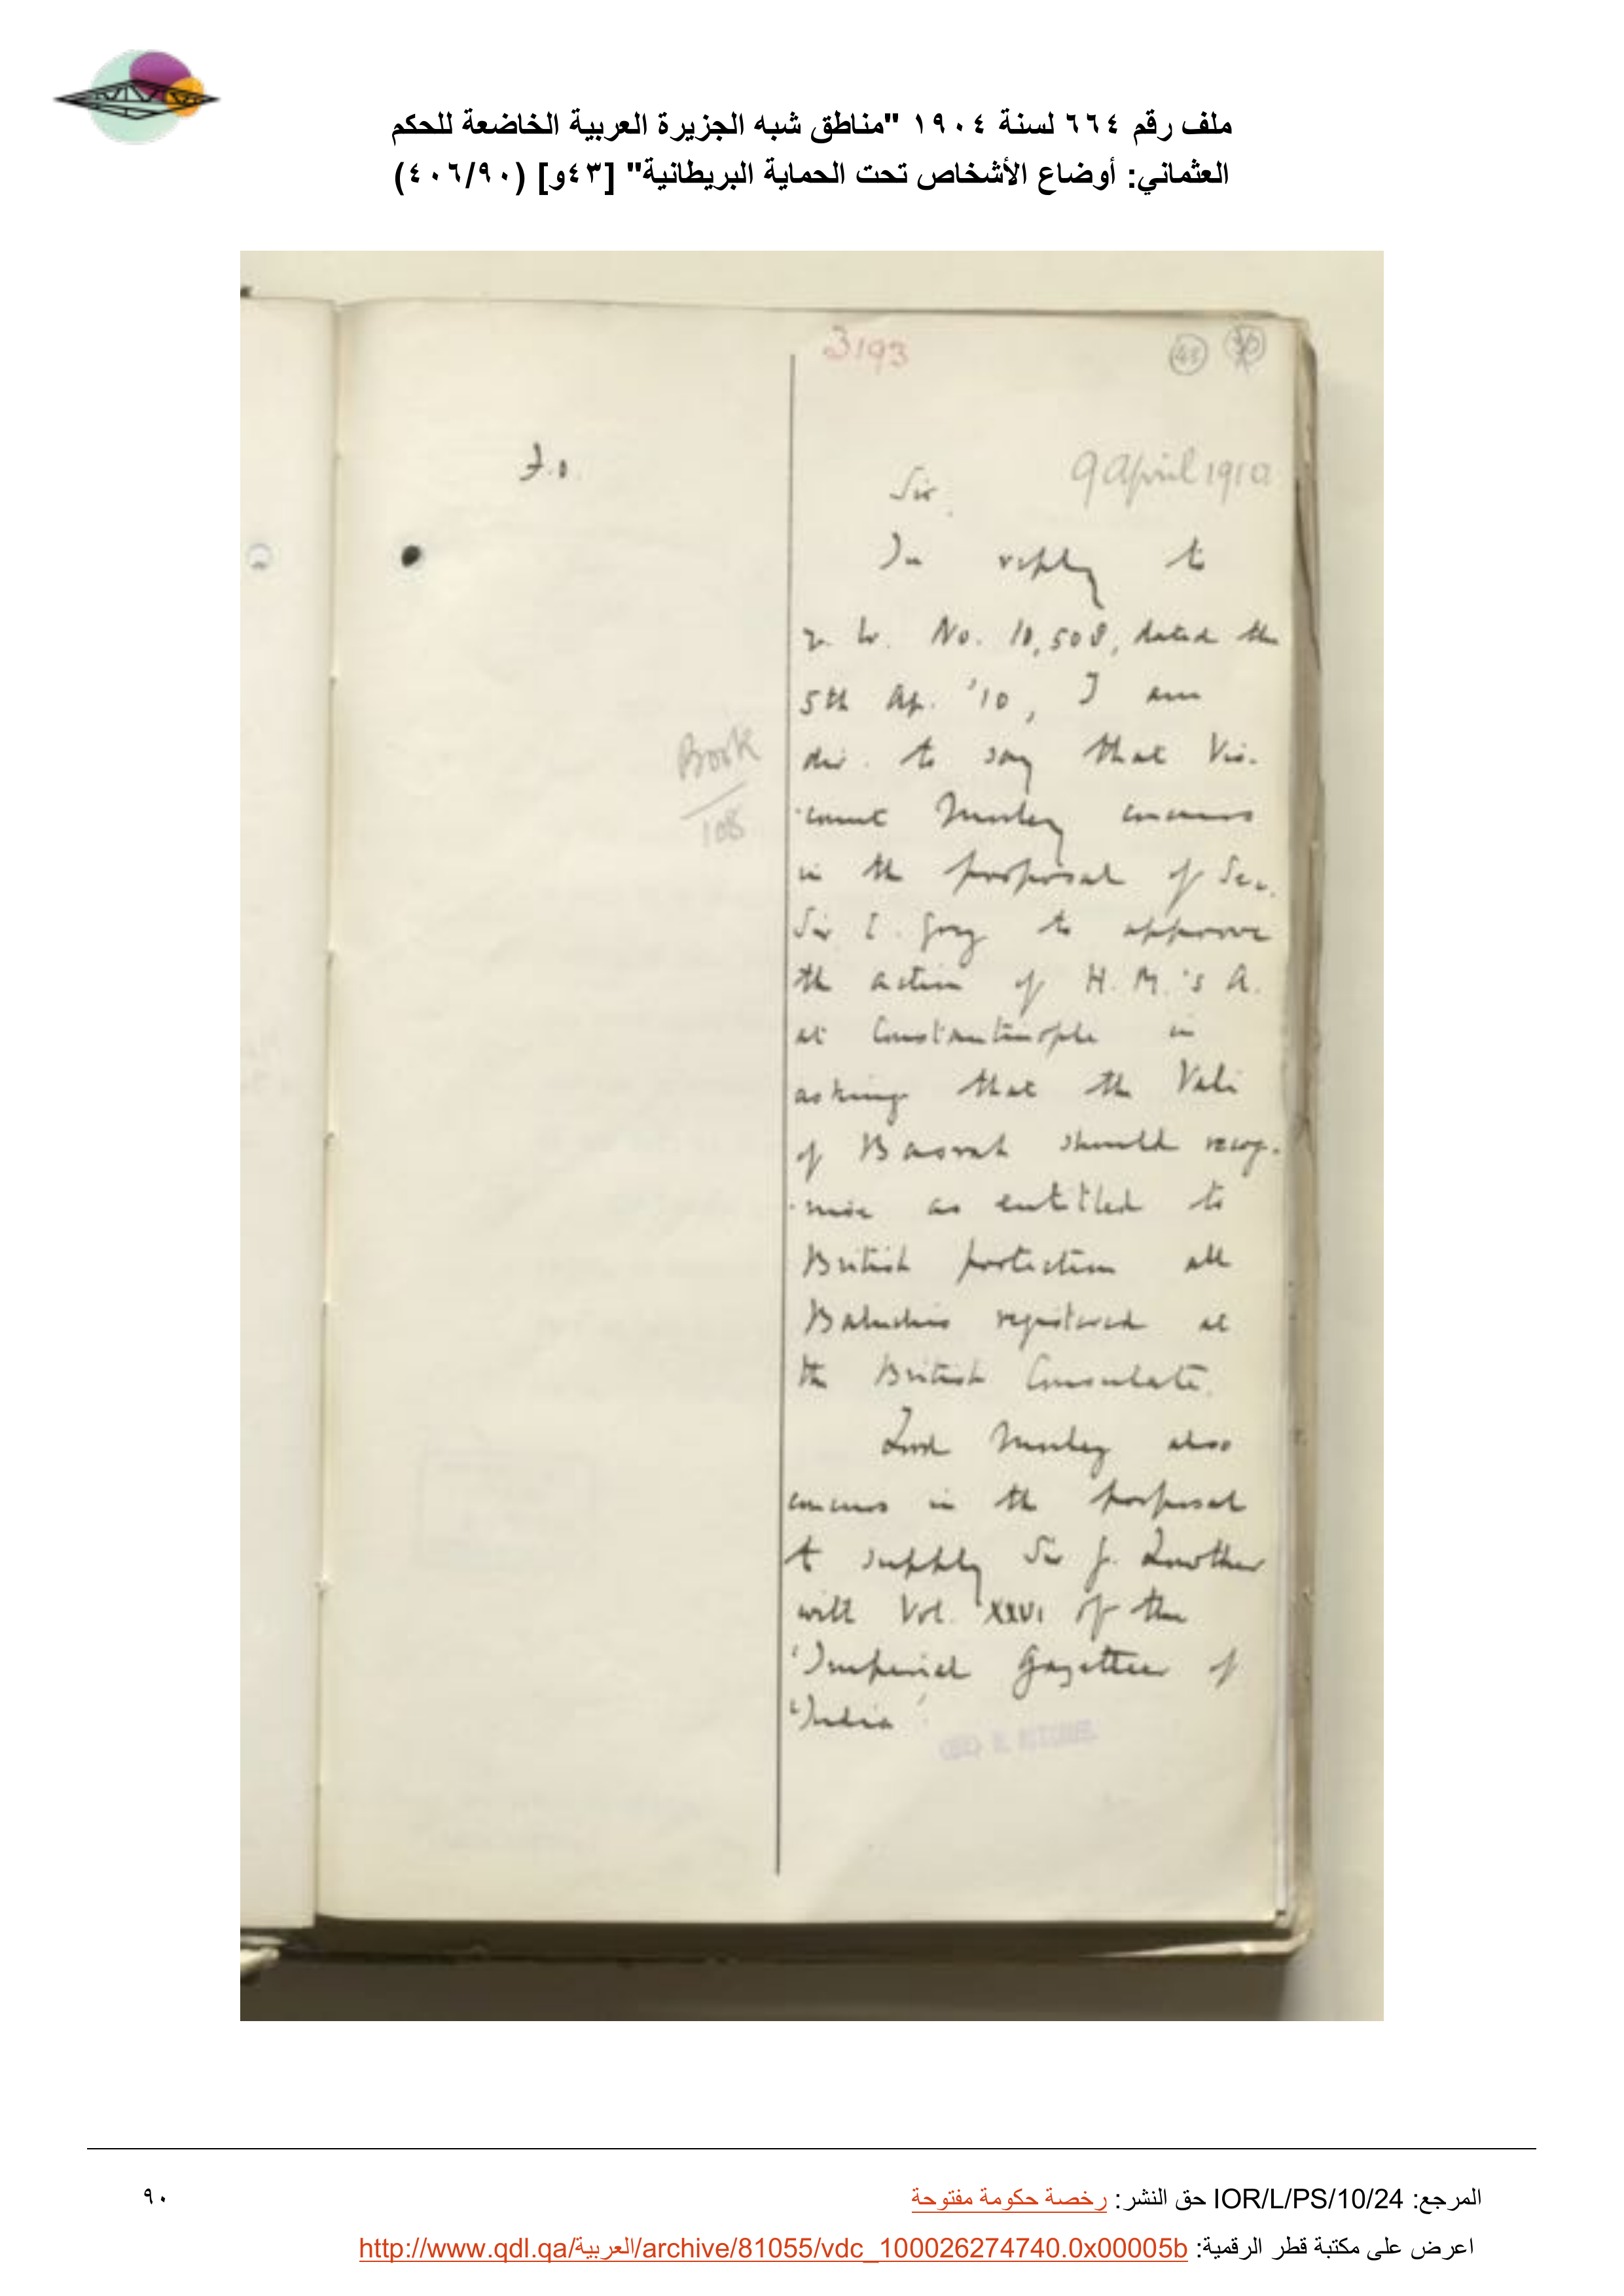 ملف رقم ٦٦٤ لسنة ١٩٠٤ "مناطق شبه الجزيرة العربية الخاضعة للحكم
العثماني: أوضاع الأشخاص تحت الحماية البريطانية" [٤٣و] (٤٠٦/٩٠)
3193
43
F.O.
9 April 1910
Sir,
In reply to
y. l. No. 10,508, dated the
5th Ap. '10, I am
dir. to say that Vis-
Book
108
-count Morley concurs
in the proposal of Sec.
Sir E. Grey to approve
the action of H.M.'s A.
at Constantinople in
asking that the Vali
of Basrah should recog-
-nise as entitled to
British protection all
Baluchis registered at
the British Consulate.
Lord Morley also
concurs in the proposal
to supply Sir G. Lowther
with Vol. XXVI of the
'Imperial Gazetteer of
'India'
المرجع: IOR/L/PS/10/24 حق النشر: رخصة حكومة مفتوحة
٩٠
اعرض على مكتبة قطر الرقمية: http://www.qdl.qa/العربية/archive/81055/vdc_100026274740.0x00005b